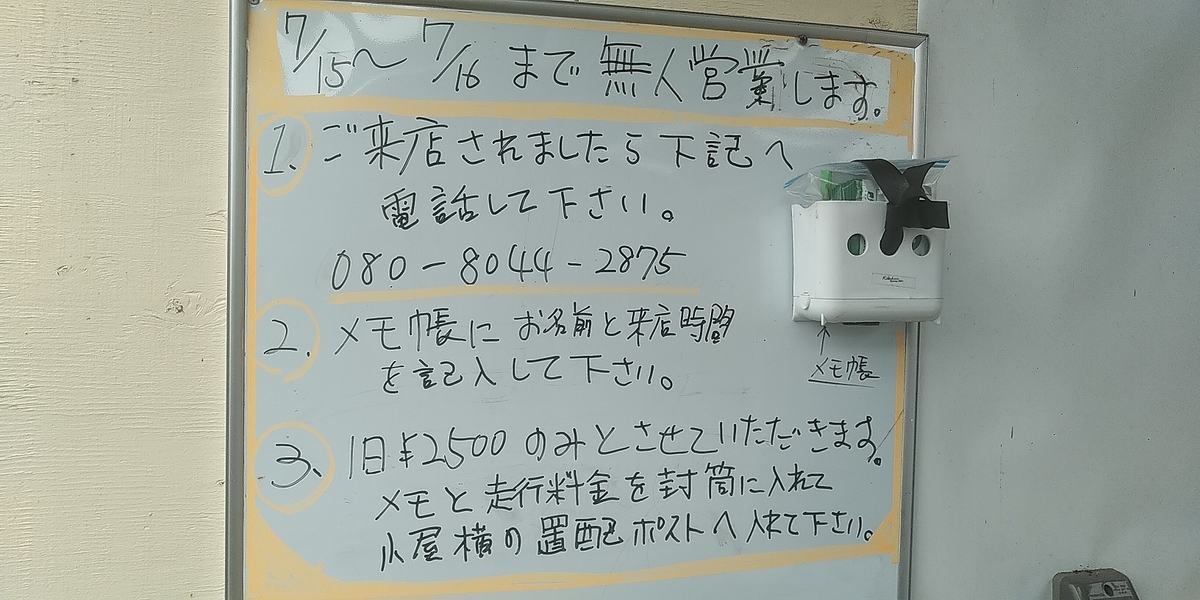 7/15〜7/16まで無人営業します。
1. ご来店されましたら下記へ
電話して下さい。
080-8044-2875
2. メモ帳にお名前と来店時間
を記入して下さい。
↑
メモ帳
3、1日¥2500のみとさせていただきます。
メモと走行料金を封筒に入れて
小屋横の置配ポストへ入れて下さい。